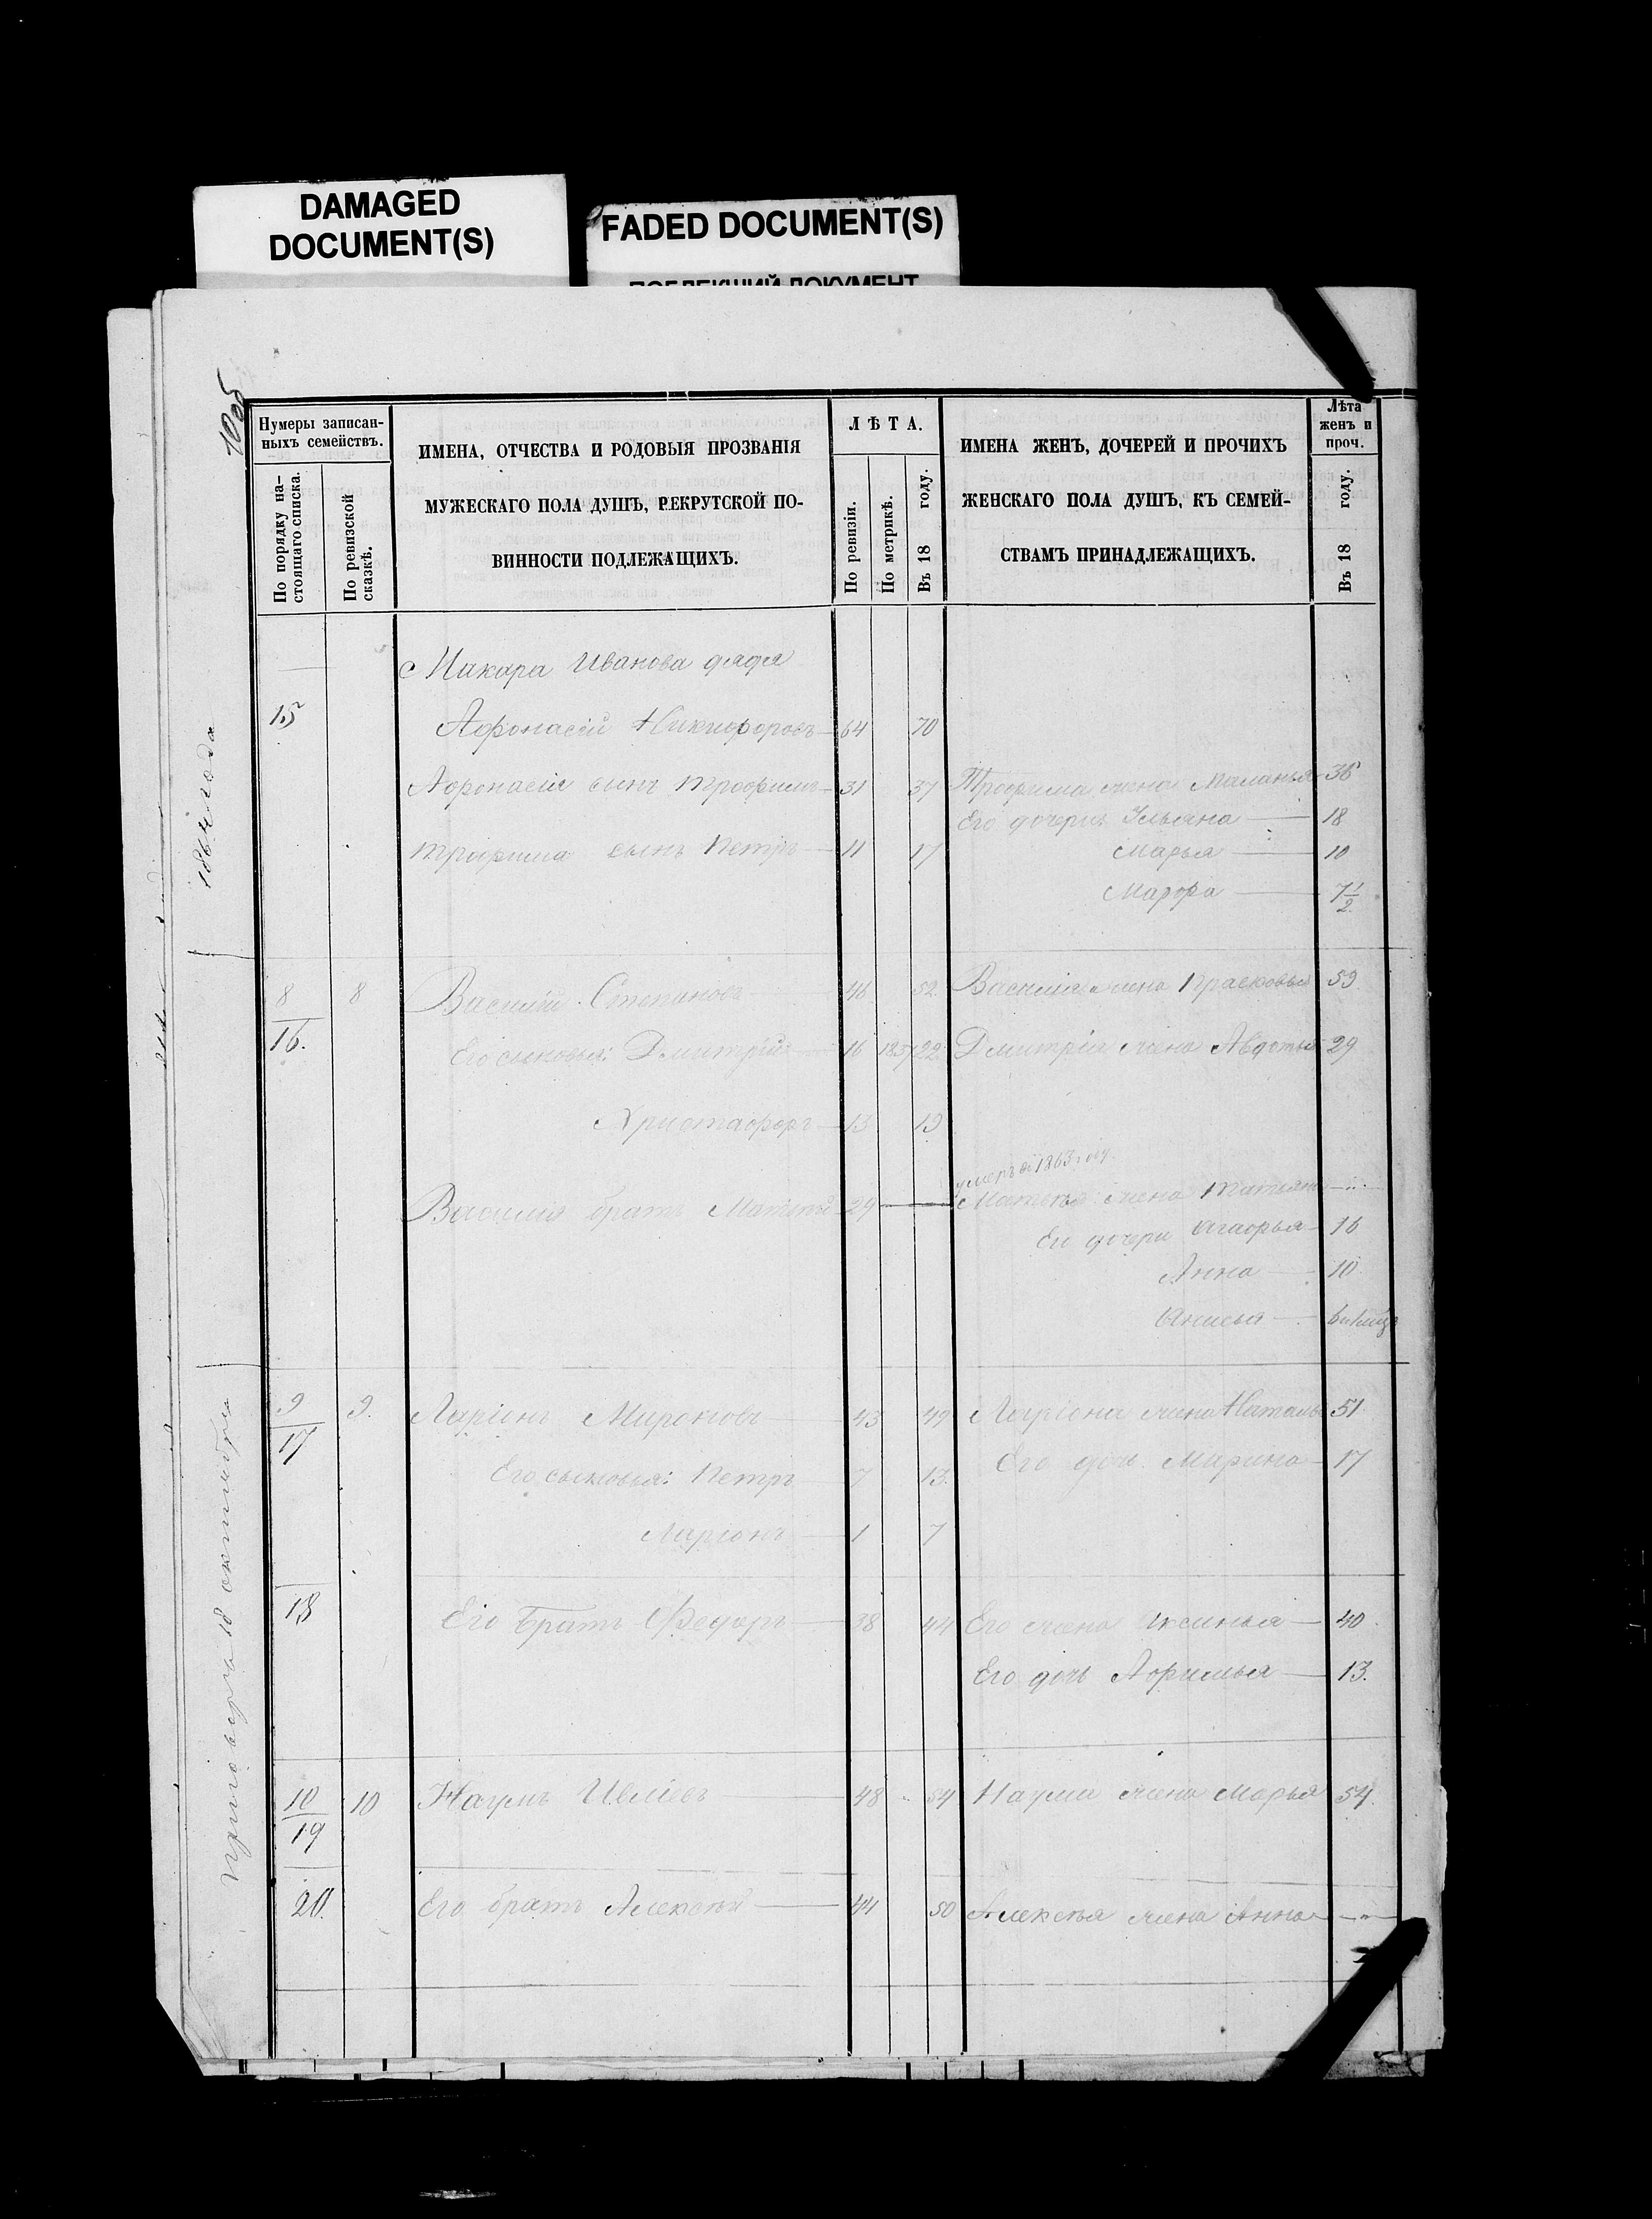 DAMAGED
DOCUMENT(S)
FADED DOCUMENT(S)
ПОБЛЕКШИЙ ДОКУМЕНТ
Нумеры записан-
ныхъ семействъ.
По порядку на-
стоящаго списка.
По ревизской
сказкѣ.
ИМЕНА, ОТЧЕСТВА И РОДОВЫЯ ПРОЗВАНІЯ
МУЖЕСКАГО ПОЛА ДУШЪ, РЕКРУТСКОЙ ПО-
ВИННОСТИ ПОДЛЕЖАЩИХЪ.
ЛѢТА.
По ревизіи.
По метрикѣ.
Въ 18 году.
ИМЕНА ЖЕНЪ, ДОЧЕРЕЙ И ПРОЧИХЪ
ЖЕНСКАГО ПОЛА ДУШЪ, КЪ СЕМЕЙ-
СТВАМЪ ПРИНАДЛЕЖАЩИХЪ.
Лѣта
женъ и
проч.
Въ 18 году.
Макара Иванова дядя
15 Афонасій Никифоровъ 64 70
Афонасія сынъ Трофимъ 31 37 Трофима жена Маланья
Его дочери Ульяна 18
Трофима сынъ Петръ 11 17 Марья 10
Марфа 7 1/2
8 8 Василій Степановъ 46 52 Василія жена Прасковья 59
16. Его сыновья: Дмитрій 16 22 Дмитрія жена Авдотья 29
Христофоръ 13 19
умеръ въ 1863 году.
Василія братъ Матвѣй 29 Матвѣя жена Татьяна
Его дочери Агафья 16
Анна 10
Анисья
9 9. Ларіонъ Мироновъ 43 49 Ларіона жена Наталья 51
17 Его сыновья: Петръ 7 13. Его дочь Марина 17
Ларіонъ 1 7
18 Его братъ Федоръ 38 44 Его жена Аксинья 40
Его дочь Афимья 13.
10 10 Наумъ Ивлiевъ 48 54 Наума жена Марья 54.
19
20. Его братъ Алексѣй 44 50 Алексѣя жена Анна
1864 года
приговоръ 18 октября